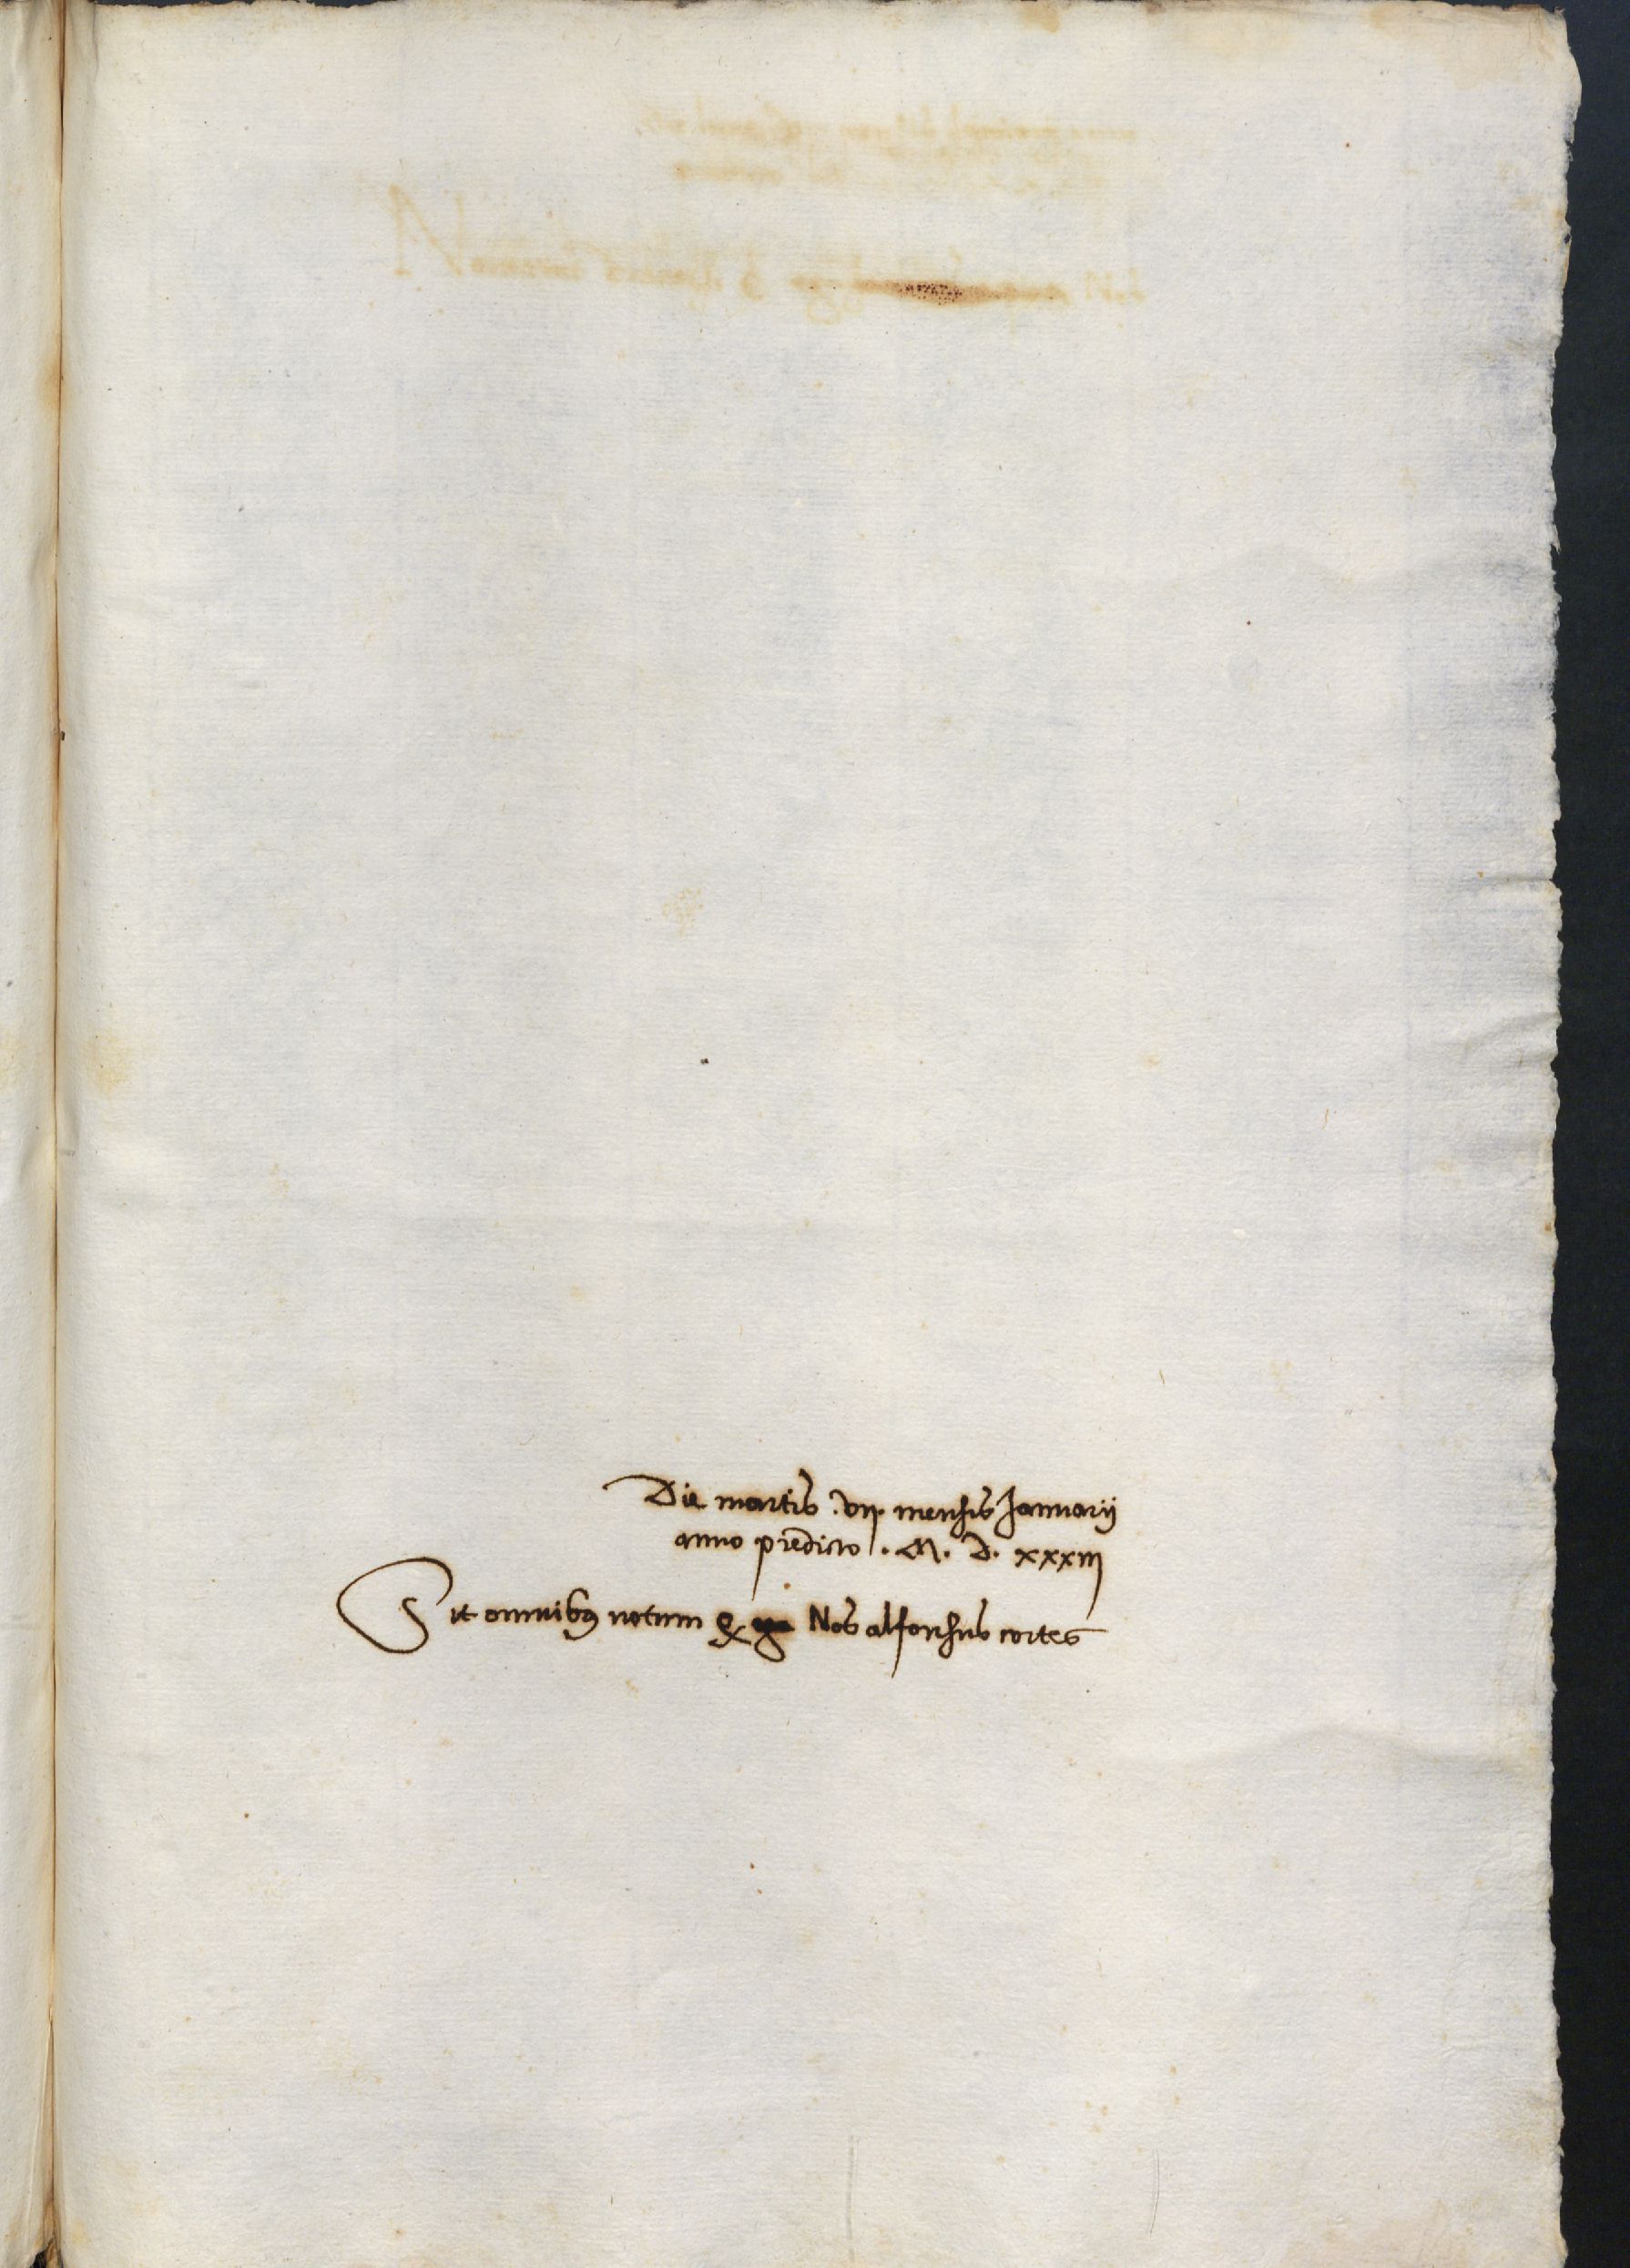 Die martis .vij. mensis Januarij
anno predicto . M. D. xxxiij
Sit omnibus notum q Nos alfonsus cortes